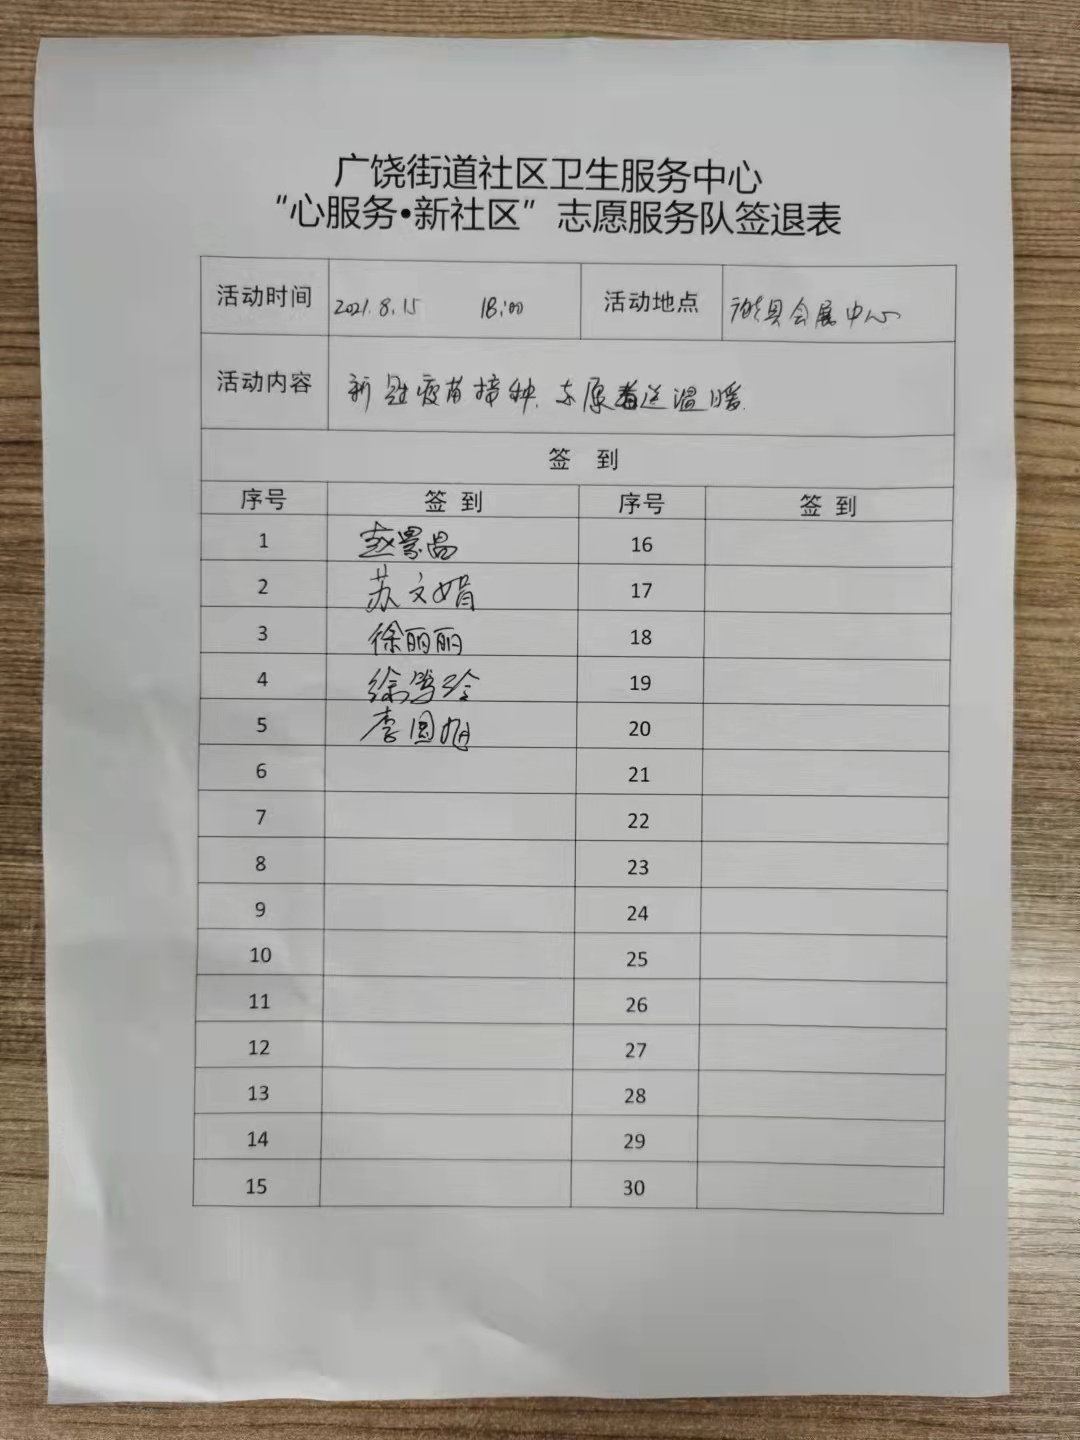 广饶街道社区卫生服务中心
“心服务•新社区”志愿服务队签退表
活动时间 2021.8.15 18:00 活动地点 会展中心
活动内容 新冠疫苗接种.志愿者送温暖.
签 到
序号 签 到 序号 签 到
1 赵景昌 16
2 苏文娟 17
3 徐丽丽 18
4 徐玲 19
5 李国旭 20
6 21
7 22
8 23
9 24
10 25
11 26
12 27
13 28
14 29
15 30